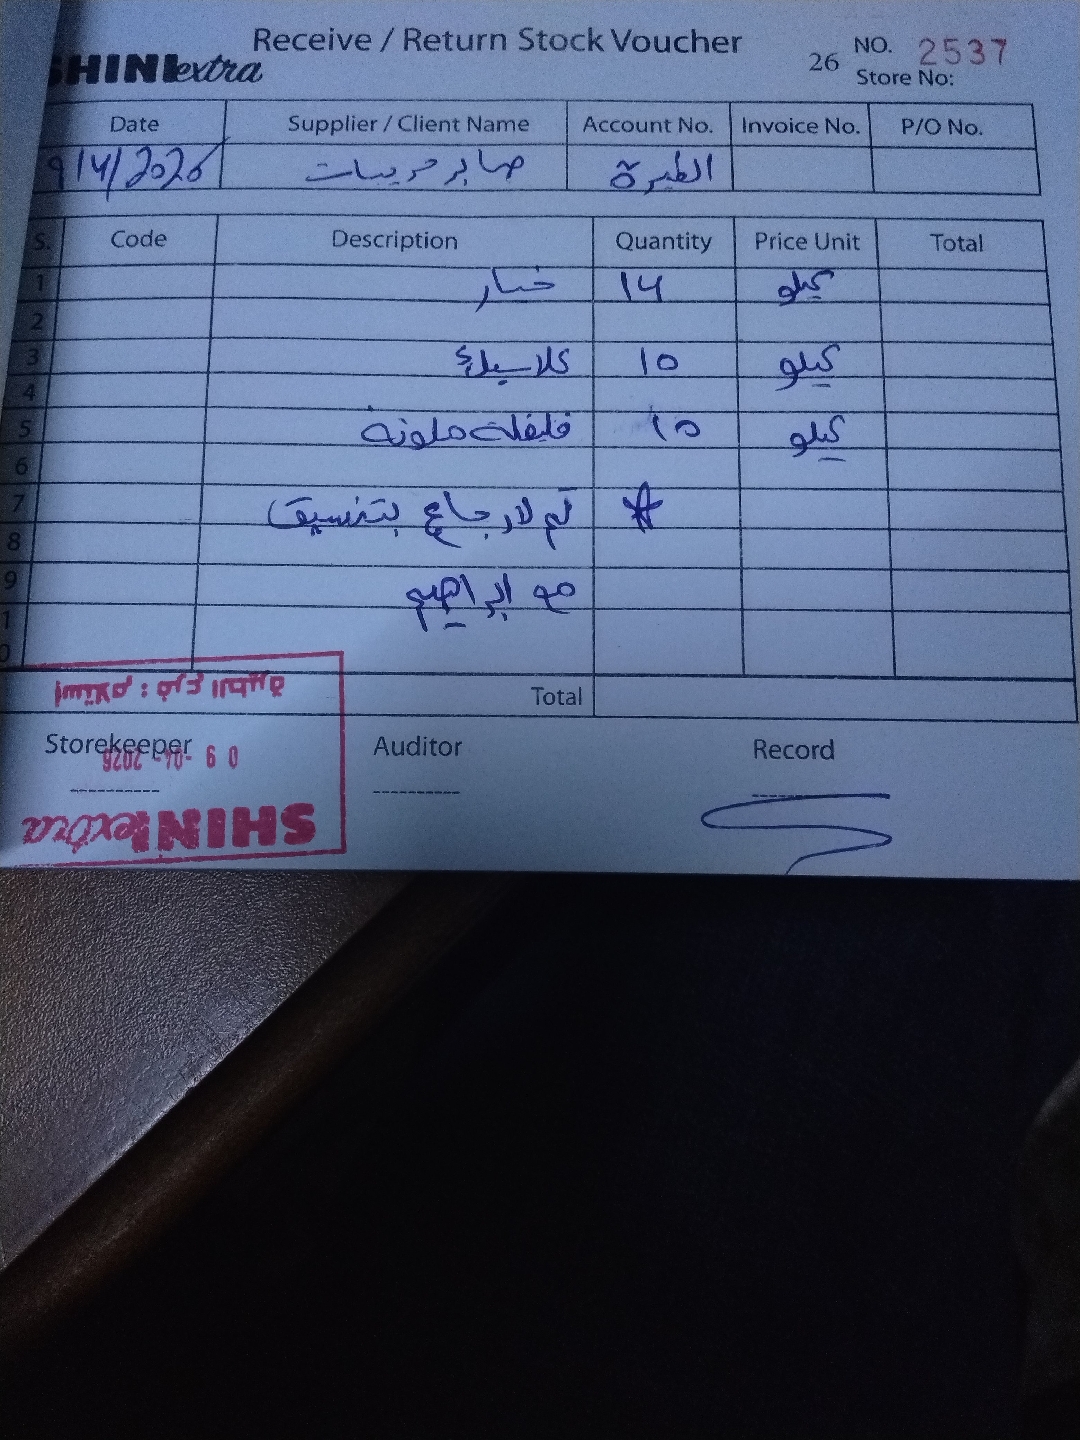 Receive / Return Stock Voucher
SHINI extra
26 NO. 2537
Store No:
Date Supplier / Client Name Account No. Invoice No. P/O No.
9/4/2026 صابر حريبات الطيرة
S. Code Description Quantity Price Unit Total
1 خيار ١٤ كيلو
2
3 كلاسيك ١٥ كيلو
4
5 فليفلة ملونة ١٥ كيلو
6
7 تم لارجاع بتنسيق *
8
9 مع ابراهيم
10
Total
استلام : فرع الطيرة
Storekeeper Auditor Record
09 -04- 2026
SHINI extra